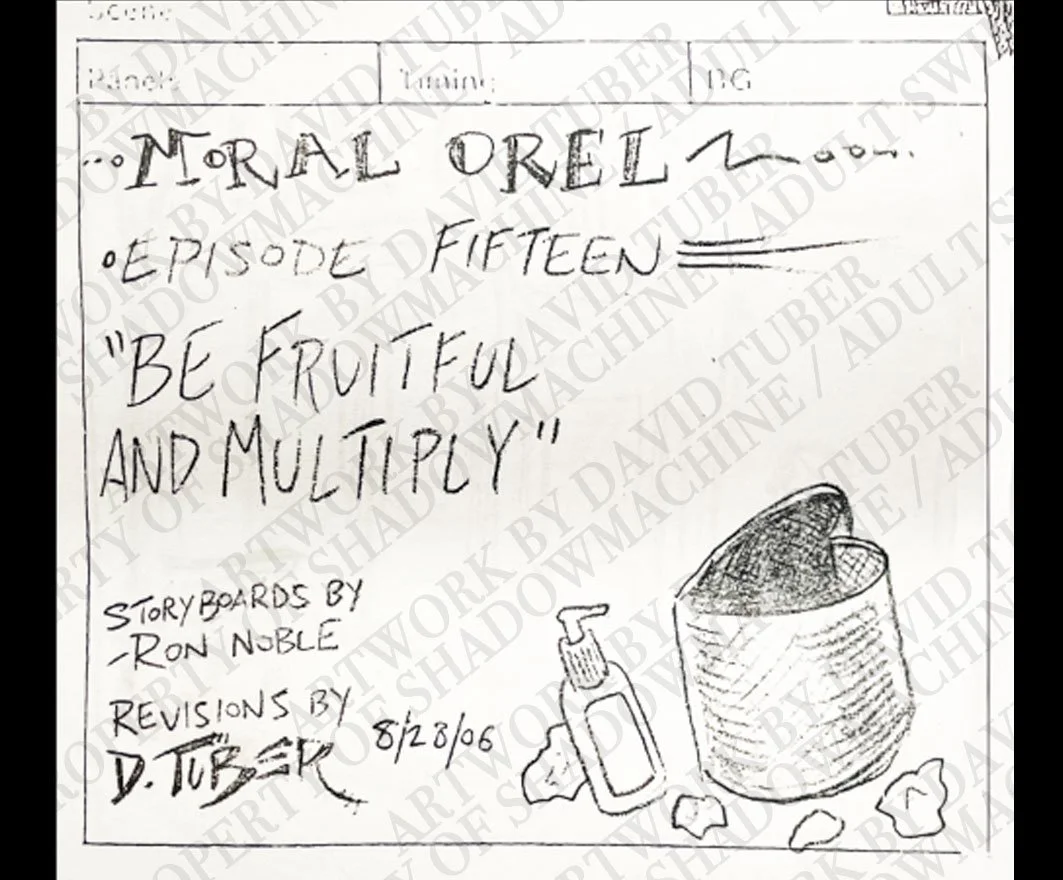 Scene
Panel:
Timing:
BG
MORAL OREL
EPISODE FIFTEEN
"BE FRUITFUL
AND MULTIPLY"
STORYBOARDS BY
-RON NOBLE
REVISIONS BY
D. TUBER 8/28/06
ARTWORK BY DAVID TUBER
PROPERTY OF SHADOWMACHINE / ADULT SWIM